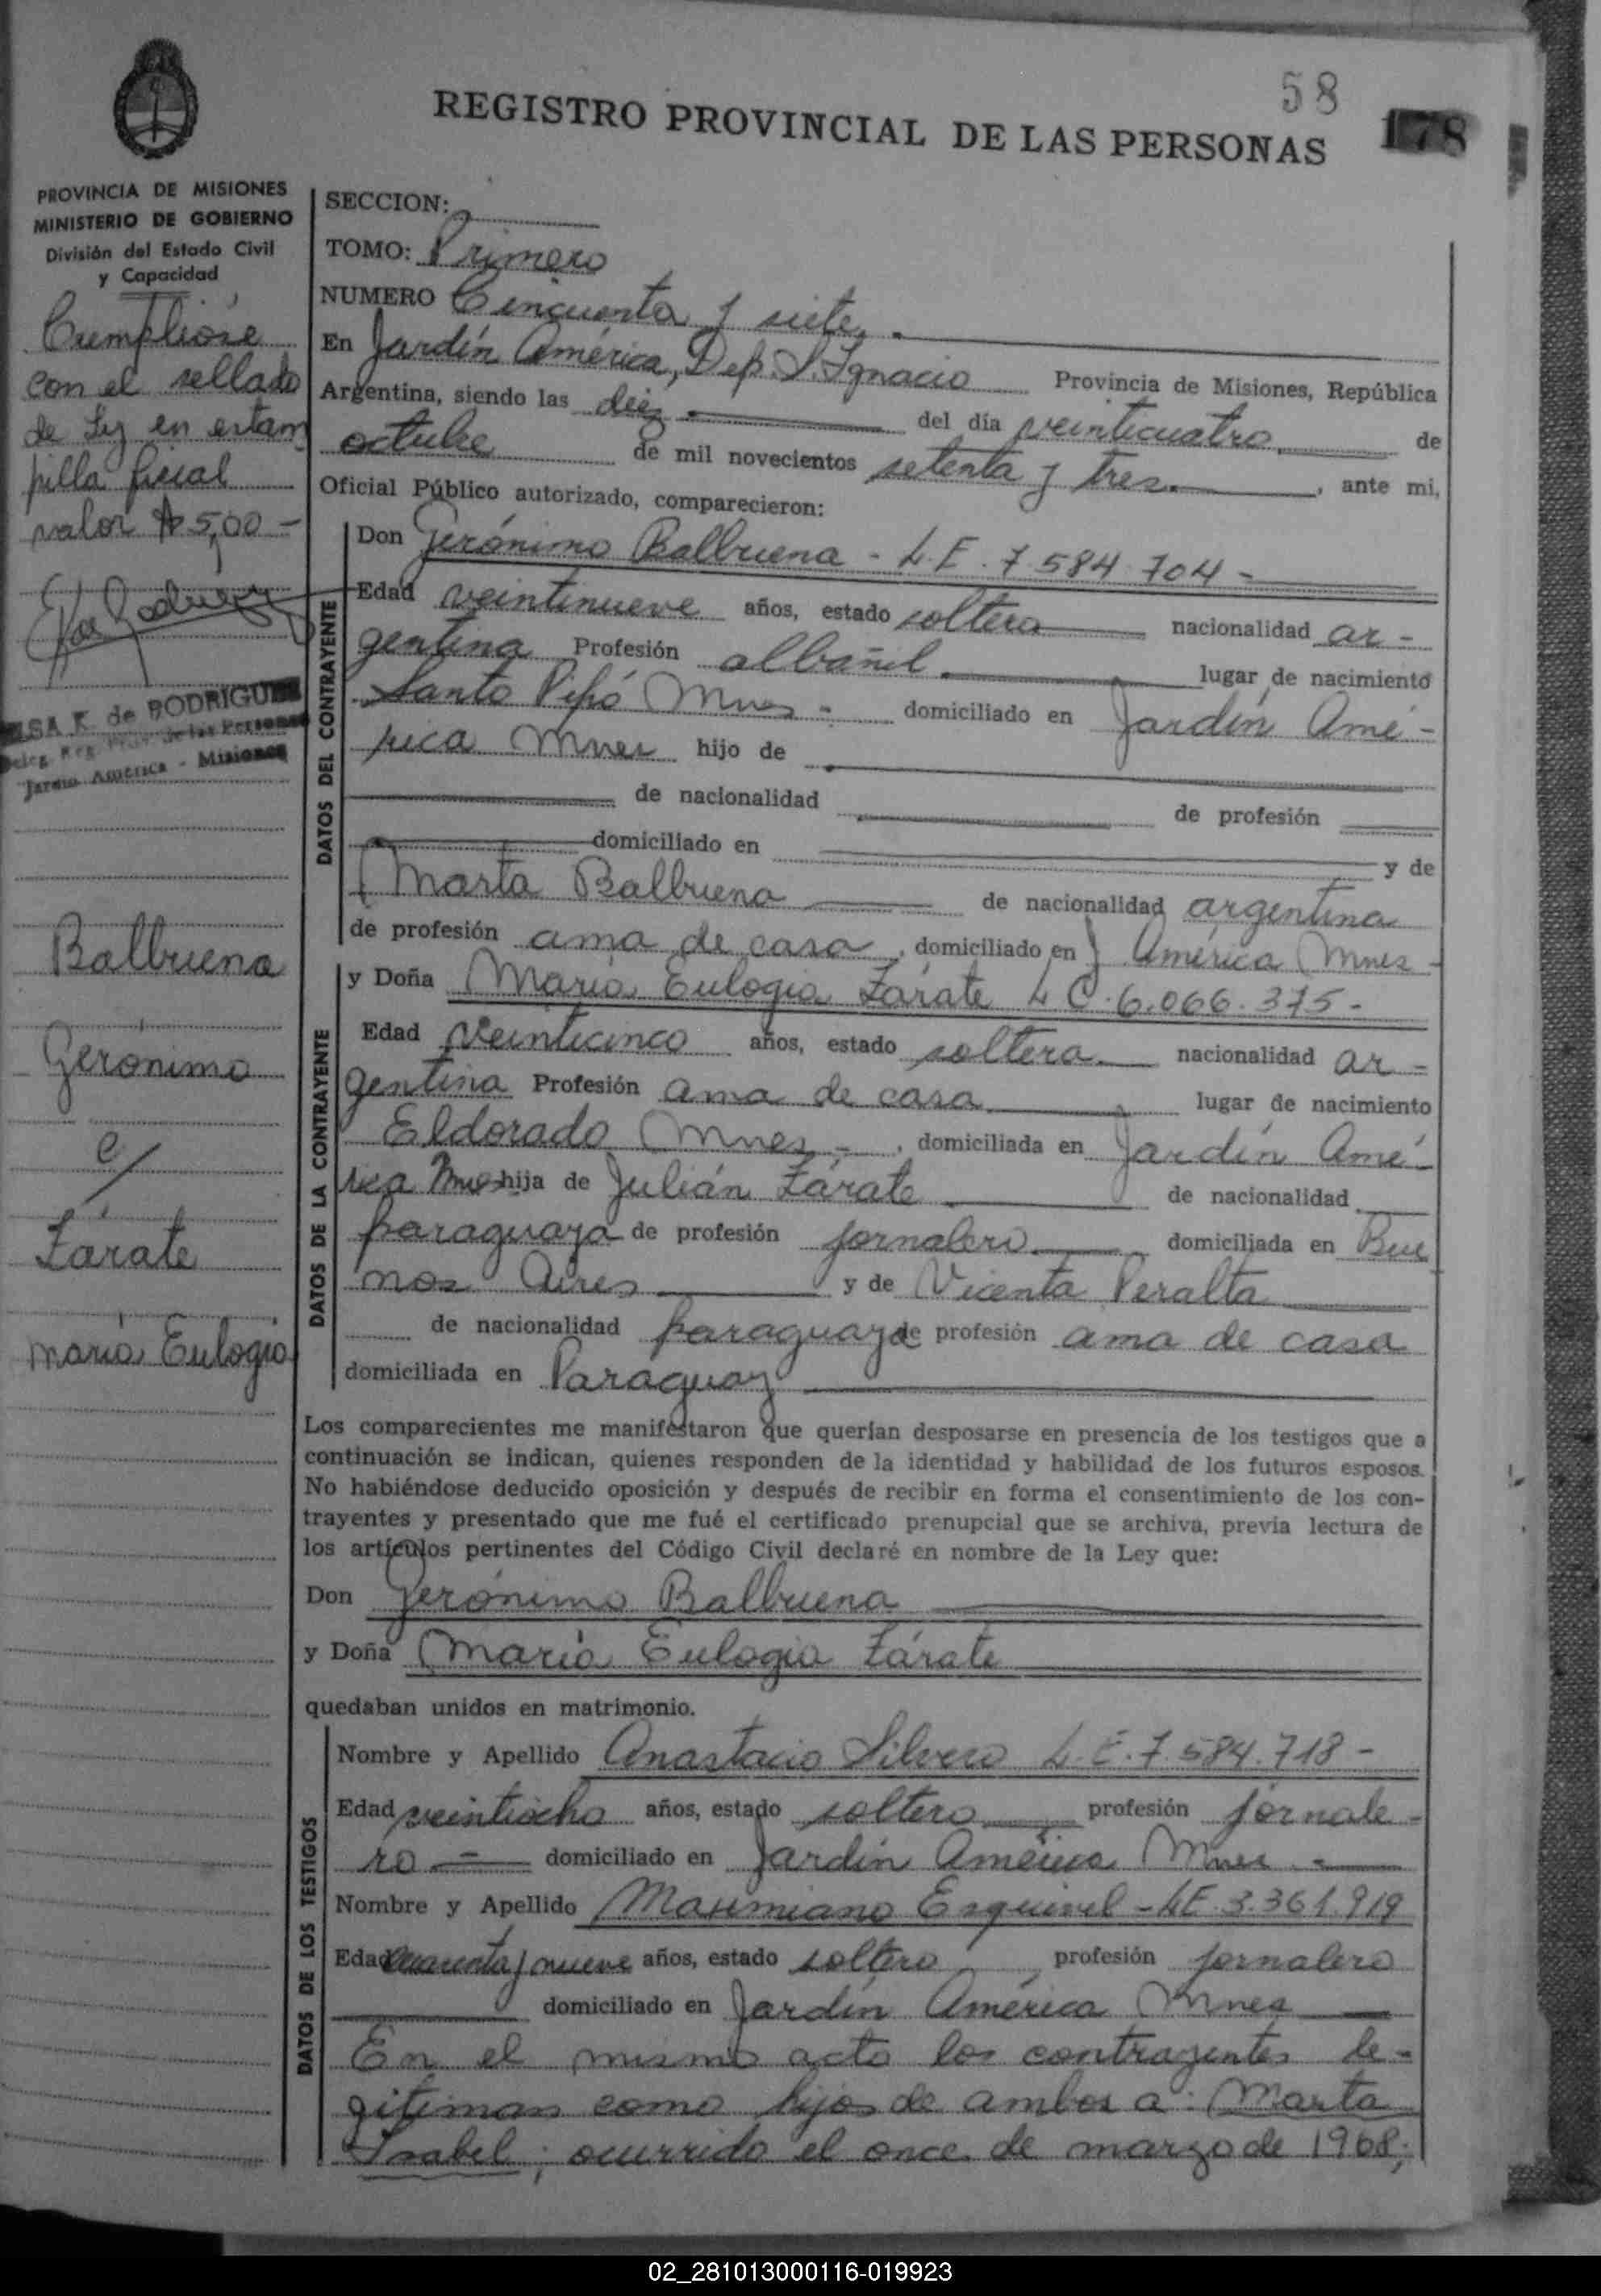 58
REGISTRO PROVINCIAL DE LAS PERSONAS 178
PROVINCIA DE MISIONES
MINISTERIO DE GOBIERNO
División del Estado Civil
y Capacidad
Cumplióse
con el sellado
de Ley en estam
pilla fiscal
valor $ 5,00 -
ELSA K. de RODRIGUEZ
Deleg. Reg. Prov. de las Personas
Jardín América - Misiones
Balbuena
Gerónimo
c/
Zárate
María Eulogia
SECCION:
TOMO: Primero
NUMERO Cincuenta y siete.
En Jardín América, Dep. S. Ignacio Provincia de Misiones, República
Argentina, siendo las diez del día veinticuatro de
octubre de mil novecientos setenta y tres. , ante mi,
Oficial Público autorizado, comparecieron:
DATOS DEL CONTRAYENTE
Don Gerónimo Balbuena - L.E. 7.584.704 -
Edad veintinueve años, estado soltero nacionalidad ar-
gentina Profesión albañil lugar de nacimiento
Santo Pipó Mnes - domiciliado en Jardín Amé-
rica Mnes hijo de
de nacionalidad de profesión
domiciliado en y de
Marta Balbuena de nacionalidad argentina
de profesión ama de casa , domiciliado en J. América Mnes -
DATOS DE LA CONTRAYENTE
y Doña María Eulogia Zárate L C. 6.066.375 -
Edad veinticinco años, estado soltera nacionalidad ar-
gentina Profesión ama de casa lugar de nacimiento
Eldorado Mnes - , domiciliada en Jardín Amé-
rica Mnes hija de Julián Zárate de nacionalidad
paraguaya de profesión jornalero domiciliada en Bue
nos Aires y de Vicenta Peralta
de nacionalidad paraguaya de profesión ama de casa
domiciliada en Paraguay
Los comparecientes me manifestaron que querían desposarse en presencia de los testigos que a
continuación se indican, quienes responden de la identidad y habilidad de los futuros esposos.
No habiéndose deducido oposición y después de recibir en forma el consentimiento de los con-
trayentes y presentado que me fué el certificado prenupcial que se archiva, previa lectura de
los artículos pertinentes del Código Civil declaré en nombre de la Ley que:
Don Gerónimo Balbuena
y Doña María Eulogia Zárate
quedaban unidos en matrimonio.
DATOS DE LOS TESTIGOS
Nombre y Apellido Anastacio Silvero L.E. 7.584.718 -
Edad veintiocho años, estado soltero profesión jornale-
ro - domiciliado en Jardín América Mnes -
Nombre y Apellido Maximiano Esquivel - L.E. 3.361.919
Edad cuarenta y nueve años, estado soltero , profesión jornalero
domiciliado en Jardín América Mnes
En el mismo acto los contrayentes le-
gitiman como hijos de ambos a: Marta
Isabel; ocurrido el once de marzo de 1968;
02_281013000116-019923